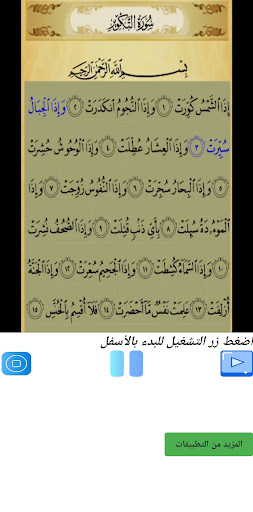 سُورَةُ التَّكْوِيرِ
بِسْمِ اللَّهِ الرَّحْمَٰنِ الرَّحِيمِ
إِذَا الشَّمْسُ كُوِّرَتْ ١ وَإِذَا النُّجُومُ انكَدَرَتْ ٢ وَإِذَا الْجِبَالُ
سُيِّرَتْ ٣ وَإِذَا الْعِشَارُ عُطِّلَتْ ٤ وَإِذَا الْوُحُوشُ حُشِرَتْ
٥ وَإِذَا الْبِحَارُ سُجِّرَتْ ٦ وَإِذَا النُّفُوسُ زُوِّجَتْ ٧ وَإِذَا
الْمَوْءُۥدَةُ سُئِلَتْ ٨ بِأَيِّ ذَنبٍ قُتِلَتْ ٩ وَإِذَا الصُّحُفُ نُشِرَتْ
١٠ وَإِذَا السَّمَاءُ كُشِطَتْ ١١ وَإِذَا الْجَحِيمُ سُعِّرَتْ ١٢ وَإِذَا الْجَنَّةُ
أُزْلِفَتْ ١٣ عَلِمَتْ نَفْسٌ مَّا أَحْضَرَتْ ١٤ فَلَا أُقْسِمُ بِالْخُنَّسِ ١٥
اضغط زر التشغيل للبدء بالأسفل
المزيد من التطبيقات